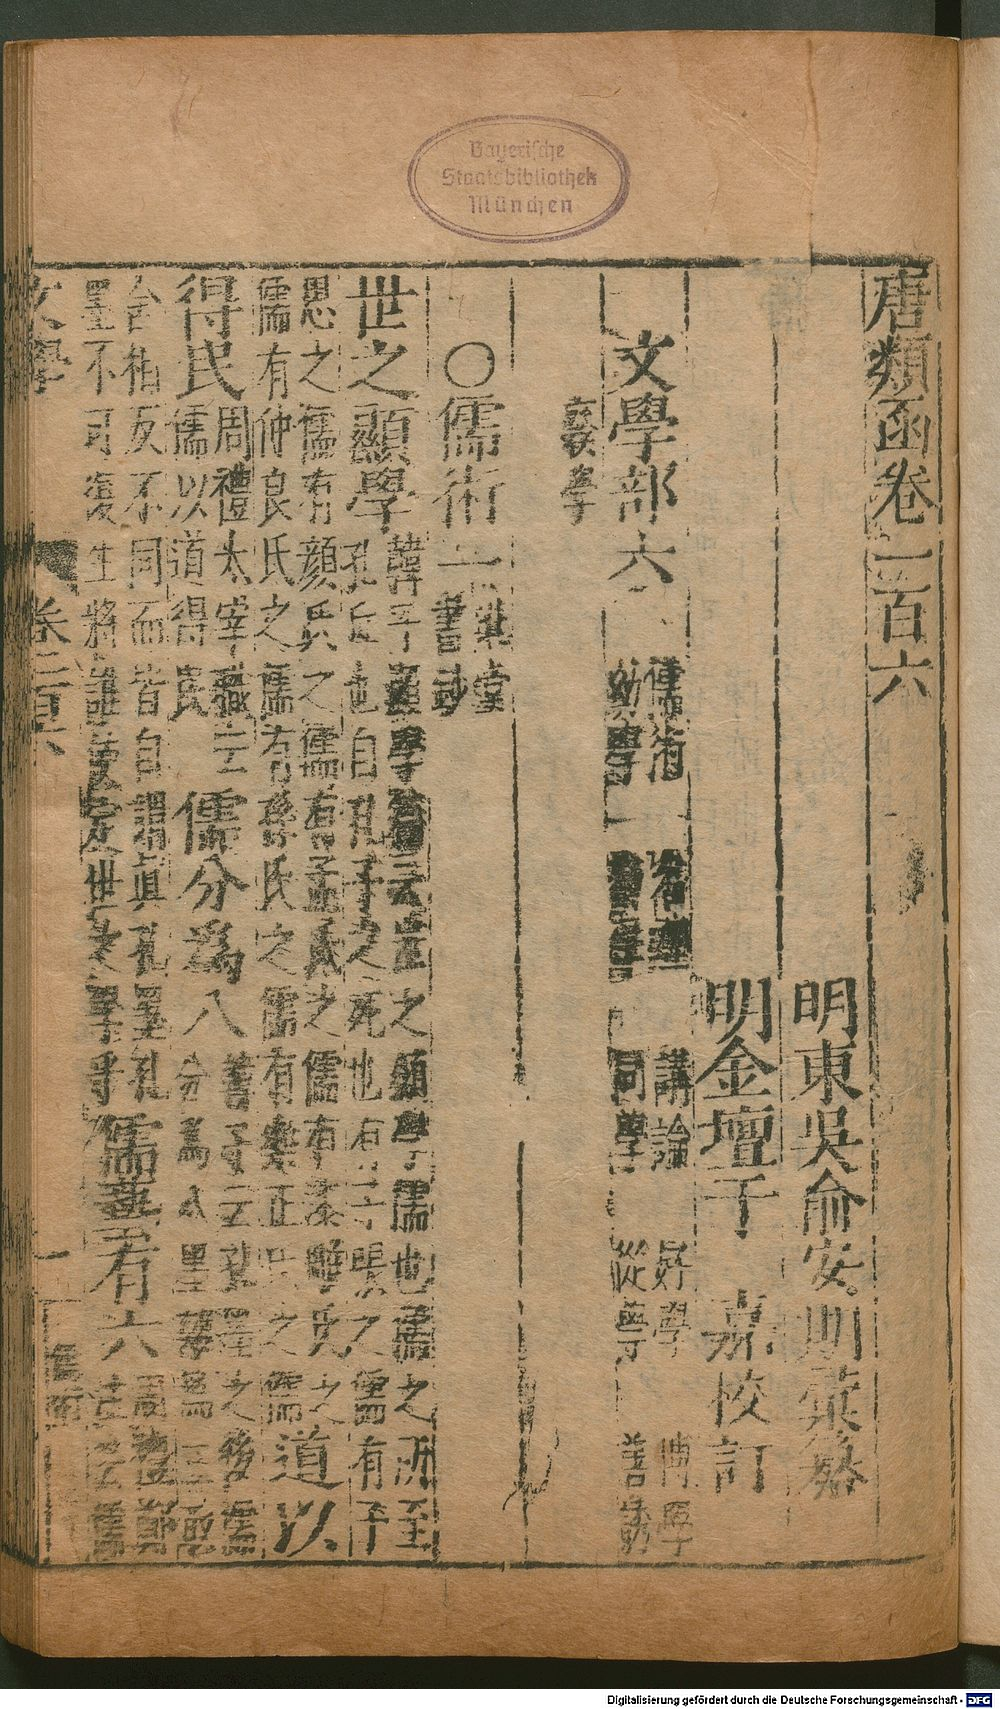 Bayerische
Staatsbibliothek
München
唐類函卷一百六
明東吳俞安期彙纂
明金壇于嘉校訂
文學部六
儒術
講論 好學 博學
勸學
同學 從學 善誘
廢學
○儒術一
書鈔
世之顯學
韓子顯學篇云世之顯學儒也儒之所至
孔丘也自孔子之死也有子張之儒有子
思之儒有顏氏之儒有孟氏之儒有漆雕氏之
儒有仲良氏之儒有孫氏之儒有樂正氏之儒
道以得民
周禮太宰職云
儒以道得民
儒分爲八
韓子云孔墨之後儒
分爲八墨離爲三取
舍相反不同而皆自謂真孔墨孔
墨不可復生將誰使定世之學乎
儒者有六
文學
卷一百六
一
Digitalisierung gefördert durch die Deutsche Forschungsgemeinschaft - DFG